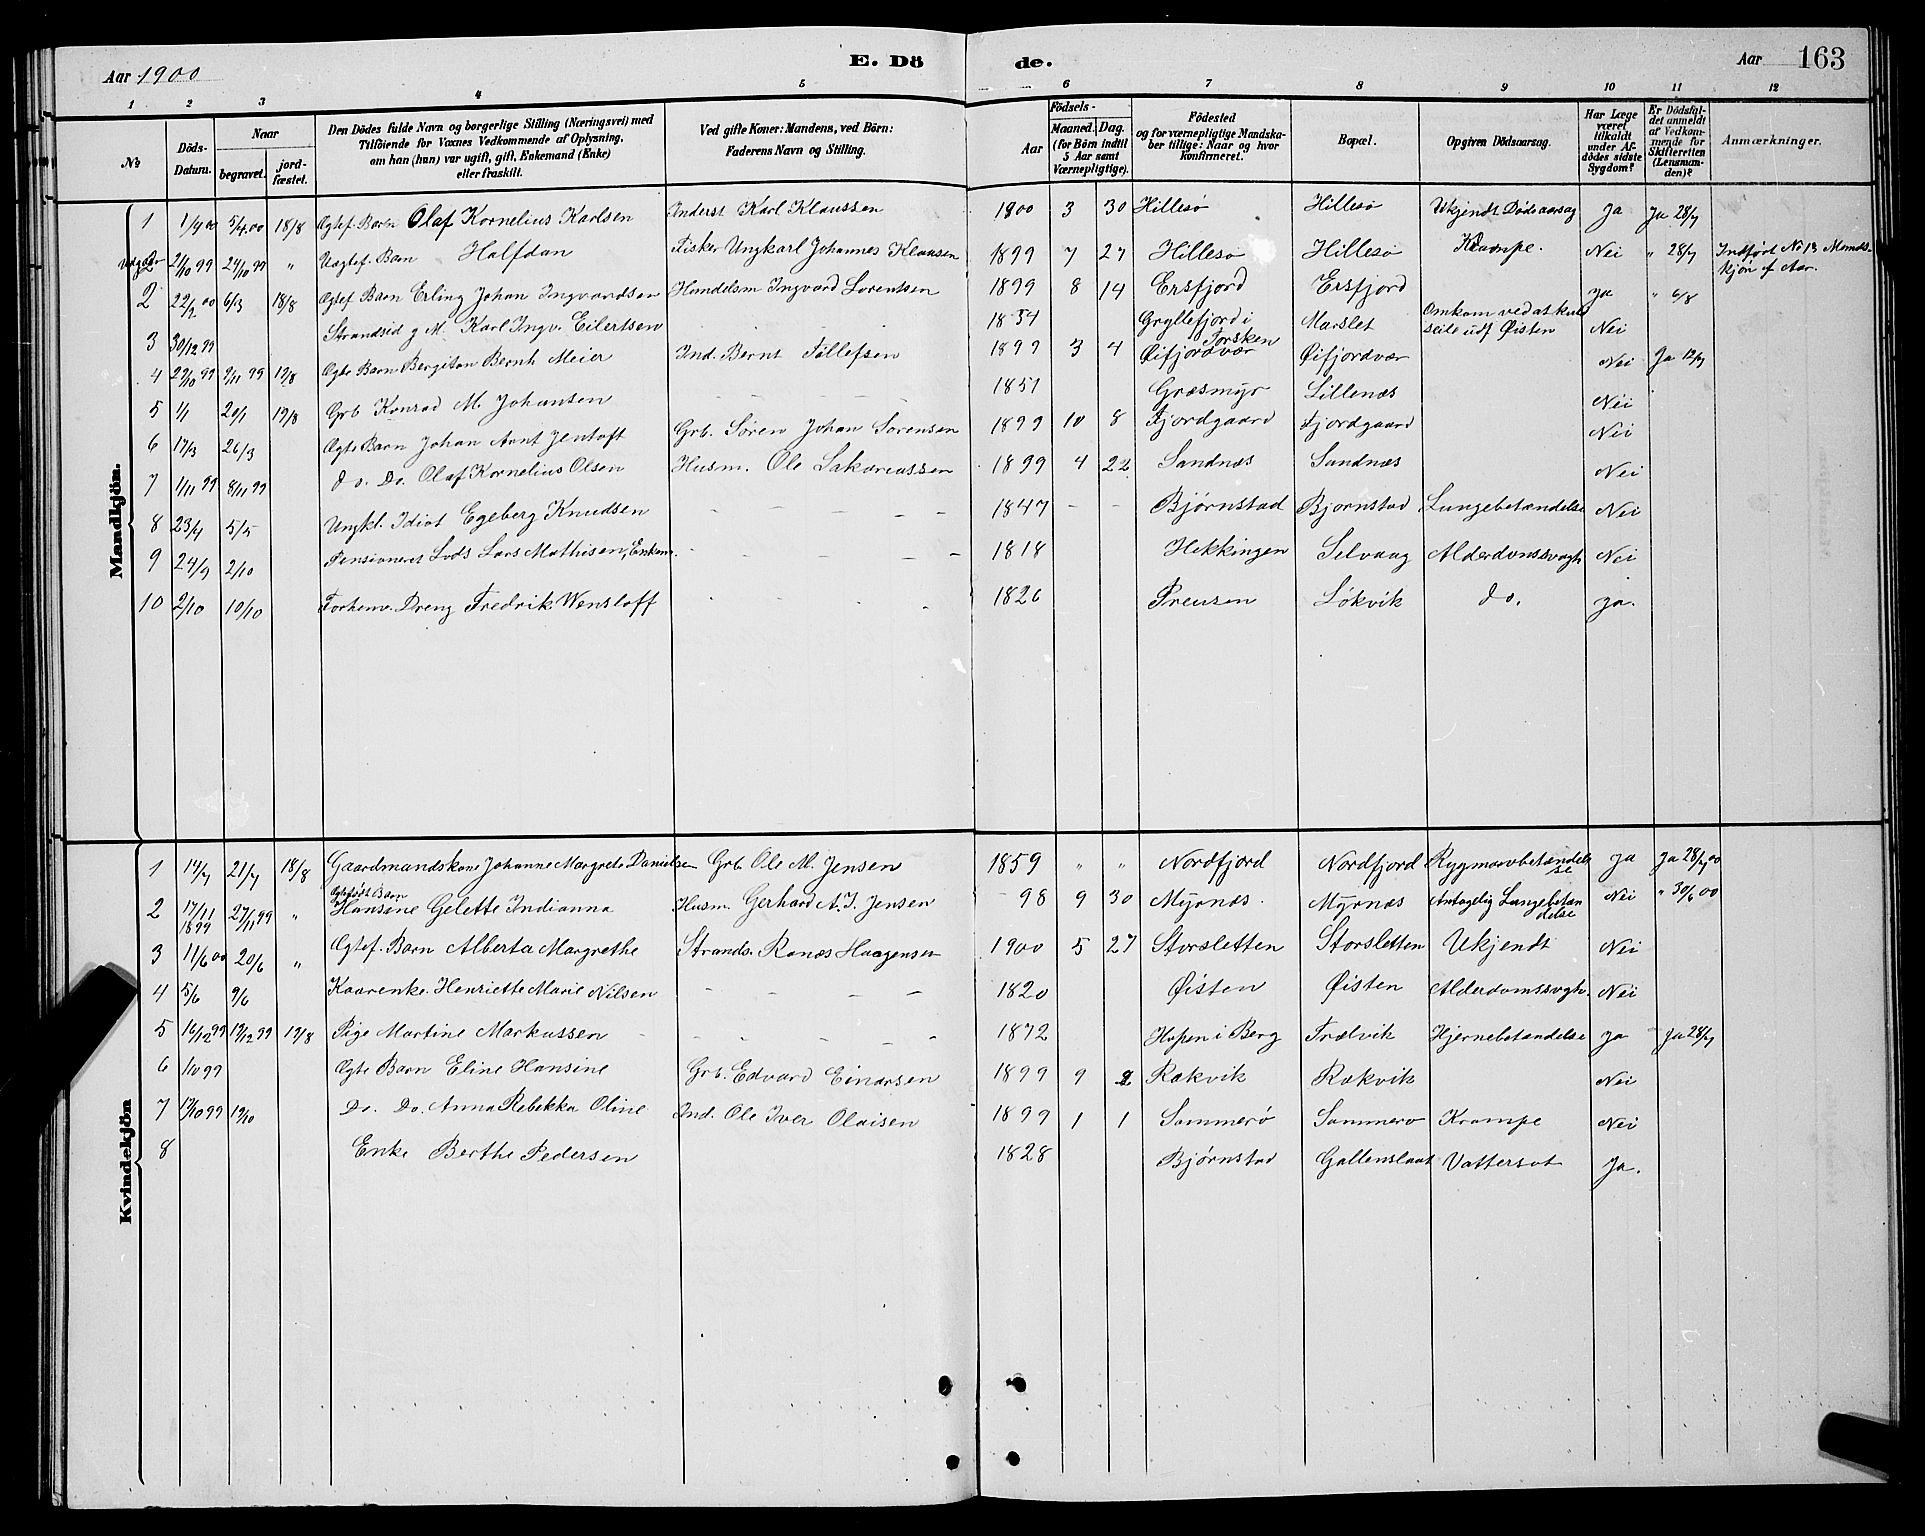 Aar 1900
E. Dö
de.
Aar 163
1 2 3 4 5 6 7 8 9 10 11 12
No
Döds-Datum.
Naar
begravet.
jord-fæstet.
Den Dödes fulde Navn og borgerlige Stilling (Næringsvei) med
Tilföiende for Voxnes Vedkommende af Oplysning,
om han (hun) var ugift, gift, Enkemand (Enke)
eller fraskilt.
Ved gifte Koner: Mandens, ved Börn:
Faderens Navn og Stilling.
Födsels-
Aar
Maaned. Dag.
(for Börn indtil
5 Aar samt
Værnepligtige).
Födested
og for værnepligtige Mandska-
ber tillige: Naar og hvor
konfirmeret.
Bopæl.
Opgiven Dödsaarsag.
Har Læge
været
tilkaldt
under Af-
dödes sidste
Sygdom?
Er Dödsfal-
det anmeldt
af Vedkom-
mende for
Skifteretten
(Lensman-
den)?
Anmærkninger.
Mandkjön.
1 1/4 00 5/4.00 18/8 Ægtef. Barn Olaf Kornelius Karlsen Inderst Karl Klaussen 1900 3 30 Hillesø Hillesø Ukjendt Dødsaarsag Ja Ja 28/7
Udgaar 2 21/10 99 24/10 99 " Uægtef. Barn Halfdan Fisker Ungkarl Johannes Klausen 1899 7 27 Hillesø Hillesø Krampe. Nei " 28/7 Indført No 13 Mands-
kjön f. Aar.
2 22/2 00 6/3 18/8 Ægtef Barn Erling Johan Ingvardsen Handelsm Ingvard Lorentsen 1899 8 14 Ersfjord Ersfjord Ja " 6/8
3 30/12 99 Strandsid g M. Karl Ingv. Eilertsen 1854 Gryllefjord i
Torsken Marslet Omkom ved at kuld
seile udf Øisten Nei
4 27/10 99 9/11 99 19/8 Ægte Barn Bergiton Bernh Meier Ind. Bernt Tollefsen 1899 3 4 Øifjordvær Øifjordvær Nei Ja 12/7
5 1/1 20/1 19/8 Grb Konrad M. Johansen - - - - 1851 Græsmyr Lillenæs Nei
6 17/3 26/3 Ægte Barn Johan Arnt Jentoft Grb. Søren Johan Sørensen 1899 10 8 Fjordgaard Fjordgaard Nei
7 1/11 99 8/11 99 do. Do. Olaf Kornelius Olsen Husm. Ole Sakariassen 1899 4 22 Sandnæs Sandnæs Nei
8 23/4 5/5 Ungkl. Idiot Egeberg Knudsen - - - - 1847 - - Bjørnstad Bjørnstad Lungebetændelse Nei
9 24/9 2/10 Pensioneret Lods Lars Mathisen, Enkem. - - - - 1818 Hekkingen Selvaag Alderdomssvagh Nei
10 2/10 10/10 Forhenv. Dreng Fredrik Wensloff 1826 Preusen Løkvik do. ja.
Kvindekjön
1 14/7 21/7 18/8 Gaardmandskone Johanne Margrete Danielsen Grb. Ole M. Jensen 1859 " " Nordfjord Nordfjord Rygmarvbetændel
se Ja Ja 28/7 00
2 17/11 1899 27/11 99 " Ægtefødt Barn
Hansine Gelette Indianna Husm. Gerhard A. J. Jensen - 98 9 30 Myrnæs. Myrnæs Antagelig Lungebetæn
delse Nei " 30/6 00
3 11/6 00 20/6 " Ægtef. Barn Alberta Margrethe Strands. Ranæs Haagensen 1900 5 27 Storsletten Storsletten Ukjendt Nei
4 5/6 9/6 Kaarenke. Henriette Marie Nilsen - - - - 1820 Øisten Øisten Alderdomssvagh. Nei
5 16/12 99 19/12 99 19/8 Pige Martine Markussen - - - - 1872 Hopen i Berg Trælvik Hjernebetændelse Ja Ja 28/7
6 1/10 99 Ægte Barn Eline Hansine Grb. Edvard Einarsen 1899 9 2 Rækvik Rækvik Nei
7 10 99 19/10 Do. Do. Anna Rebekka Oline Ind. Ole Iver Olaisen 1899 1 1 Sommerø Sommerø Krampe Nei
8 Enke Berthe Pedersen 1828 Bjørnstad Gallenslaat Vattersot Ja.